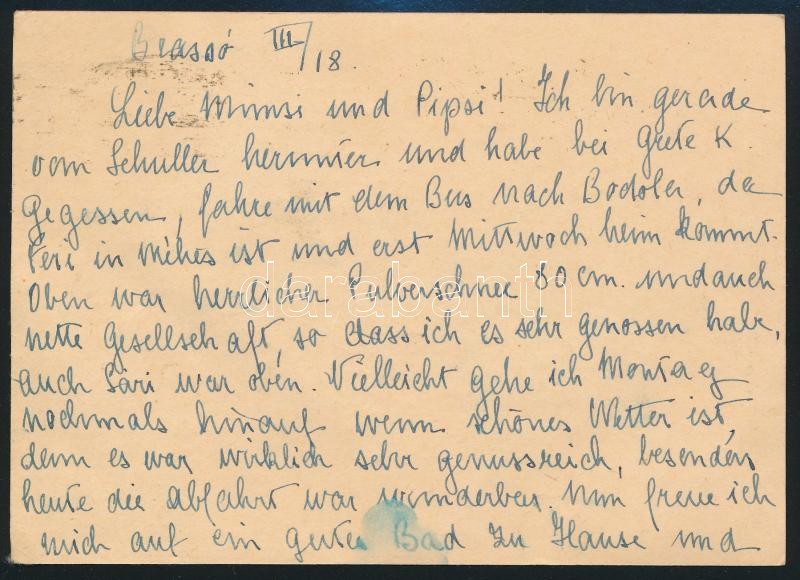 Brassó III/18.
Liebe Mimsi und Pipsi! Ich bin gerade
vom Schuller herunter und habe bei Grete K.
gegessen, fahre mit dem Bus nach Bodoler, da
Feri in Méhes ist und erst Mittwoch heim kommt.
Oben war herrlicher Pulverschnee 80 cm. und auch
nette Gesellschaft, so dass ich es sehr genossen habe,
auch Sári war oben. Vielleicht gehe ich Montag
nochmals hinauf wenn schönes Wetter ist,
denn es war wirklich sehr genussreich, besonders
heute die Abfahrt war wunderbar. Nun freue ich
mich auf ein gutes Bad zu Hause und
darabanth